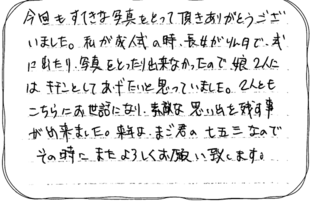 今回もすてきな写真をとって頂きありがとうござ
いました。私が成人式の時、長女が4ヶ月で、式
に出たり、写真をとったり出来なかったので娘2人に
はキチンとしてあげたいと思っていました。2人とも
こちらにお世話になり、素敵な思い出を残す事
が出来ました。来年は、まご君の七五三なので
その時にまたよろしくお願い致します。